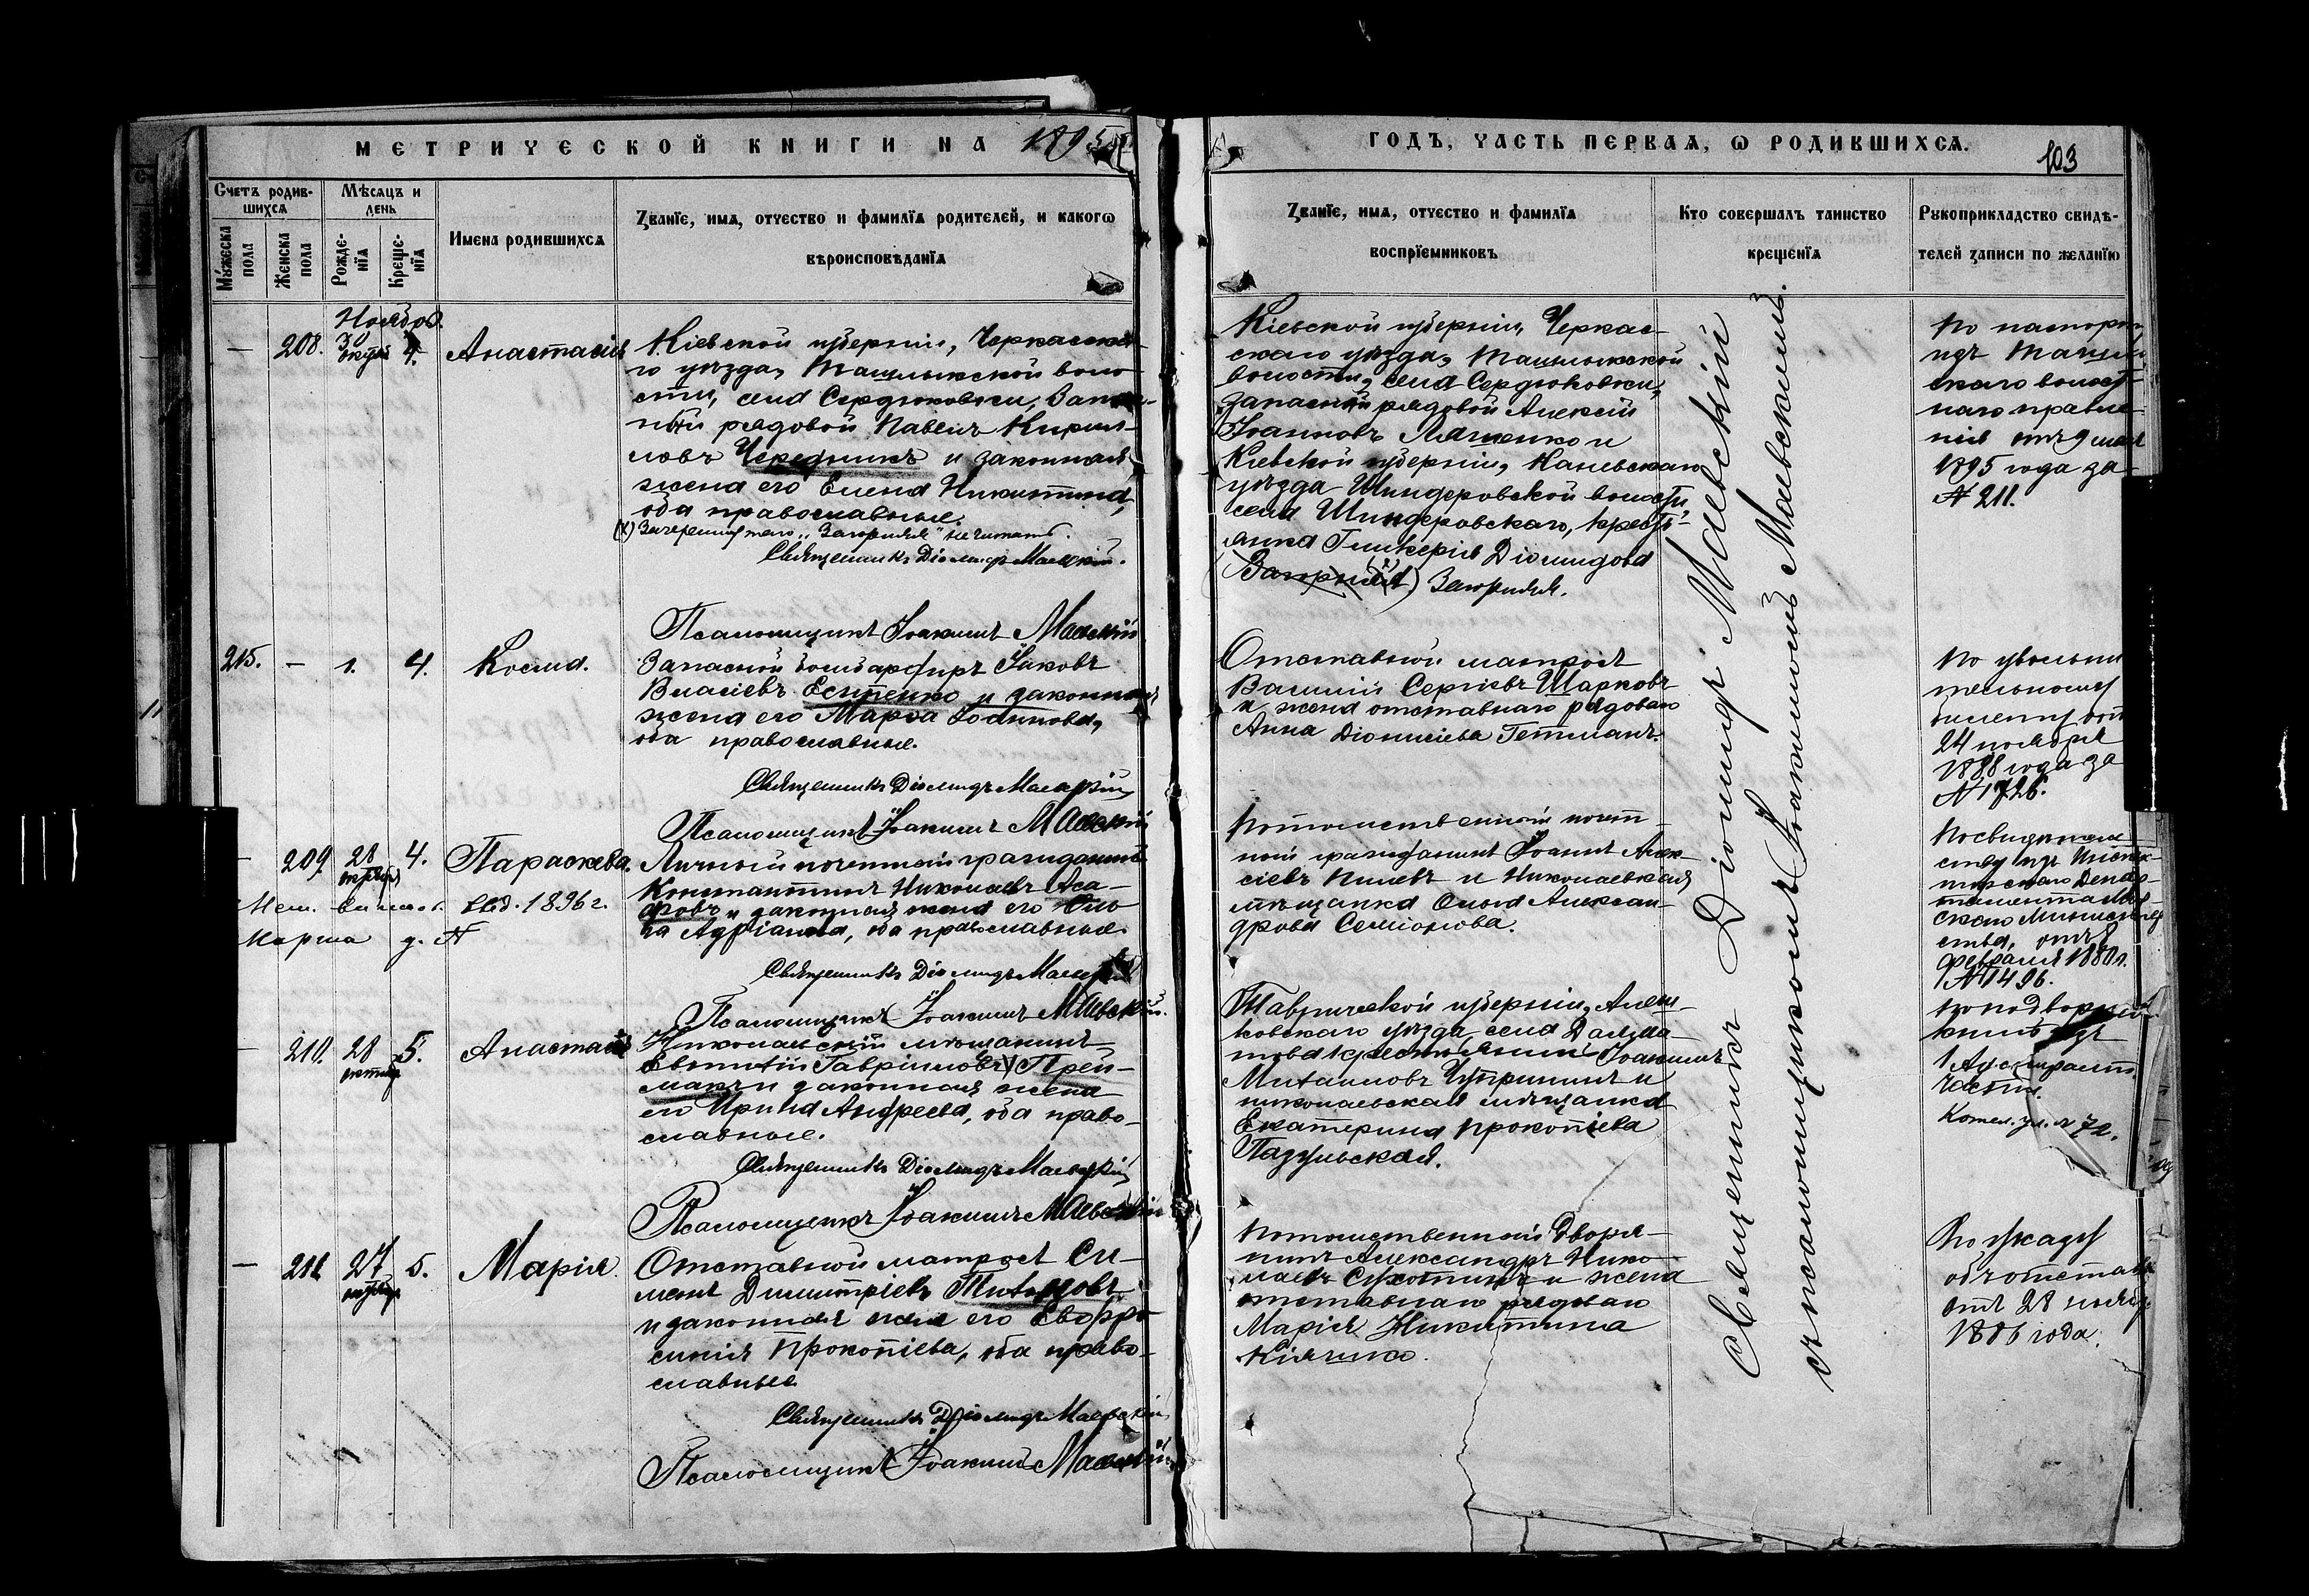 МЕТРИЧЕСКОЙ КНИГИ НА 1895
ГОДЪ, ЧАСТЬ ПЕРВАЯ, Ѡ РОДИВШИХСЯ.
103
Счетъ родив-
шихся
Мѣсяцъ и
день
Мужеска
пола
Женска
пола
Рожде-
нїя
Креще-
нїя
Имена родившихся
Званїе, имя, отчество и фамилїя родителей, и какогѡ
вѣроисповѣданїя
Званїе, имя, отчество и фамилїя
воспрїемниковъ
Кто совершалъ таинство
крещенїя
Рукоприкладство свидѣ-
телей записи по желанїю
Ноябрь
— 208. 30 4. Анастасія
Кіевской губерніи, Черкасска-
го уѣзда, Ташлыкской воло-
сти, села Сердюковки, Запас-
ный рядовой Павелъ Кирил-
ловъ Чередникъ и законная
жена его Елена Никитина,
оба православные.
(х) Зачеркнутаго „Загорняя" не читать.
Священникъ Діомидъ Маевскій.
Псаломщикъ Іоакимъ Маевскій
Кіевской губерніи, Черкас-
скаго уѣзда, Ташлыкской
волости, села Сердюковки,
запасной рядовой Алексій
Іоанновъ Ляшенко и
Кіевской губерніи, Каневскаго
уѣзда Шендеровской волости
села Шендеровскаго, кресть-
янка Гликерія Діомидова
Загорняя.
По паспорту
изъ
скаго волост-
наго правле-
нія отъ 9 мая
1895 года за
№ 211.
215. — 1. 4. Косма.
Запасной бомбардиръ Іаковъ
Власіевъ Есипенко и законная
жена его Марѳа Іоаннова,
оба православные.
Священникъ Діомидъ Маевскій
Псаломщикъ Іоакимъ Маевскій
Отставной матросъ
Василій Сергіевъ Шарковъ
и жена отставнаго рядоваго
Анна Діонисіева Гетманъ.
По увольни
тельному
билету отъ
24 ноября
1888 года за
№ 1726.
— 209. 28 октября 4. Параскева.
Мет. выпись выд. 1896 г.
Марта д. №
Личный почетный гражданинъ
Константинъ Николаевъ Ага-
фовъ и законная жена его Оль-
га Адріанова, оба православные.
Священникъ Діомидъ Маевскій
Псаломщикъ Іоакимъ Маевскій.
Потомственный почет-
ный гражданинъ Іоаннъ Алек-
сіевъ и Николаевская
мѣщанка Ольга Алексан-
дрова Семіонова.
По свидѣтель-
ству изъ Инспек-
торскаго Депар-
тамента Мор-
скаго Министер-
ства, отъ 8
февраля 1880 г.
№ 1496.
— 210. 28 октября 5. Анастасія
Николаевскій мѣщанинъ
Евѳимій Гавріиловъ Трей-
макъ и законная жена
его Ирина Андреева, оба право-
славные.
Священникъ Діомидъ Маевскій
Псаломщикъ Іоакимъ Маевскій
Таврической губерніи, Алеш-
ковскаго уѣзда, села Далма-
това крестьянинъ Іоакимъ
Михаиловъ Чупринин и
николаевская мѣщанка
Екатерина Прокопіева
Пазульская.
по подворной
книгѣ
1 Адмиралт.
части.
Котел. ул. № 72.
— 211. 27 октября 5. Марія.
Отставной матросъ Си-
меонъ Димитріевъ Титовъ
и законная жена его Евфро
синія Прокопіева, оба право-
славные
Священникъ Діомидъ Маевскій
Псаломщикъ Іоакимъ Маевскій
Потомственный Дворя-
нинъ Александръ Нико-
лаевъ Сухотинъ и жена
отставнаго рядоваго
Марія Никитина
По указу
объ отставкѣ
отъ 28 ноября
1886 года.
Священникъ Діомидъ Маевскій
съ псаломщикомъ Іоакимомъ Маевскимъ.